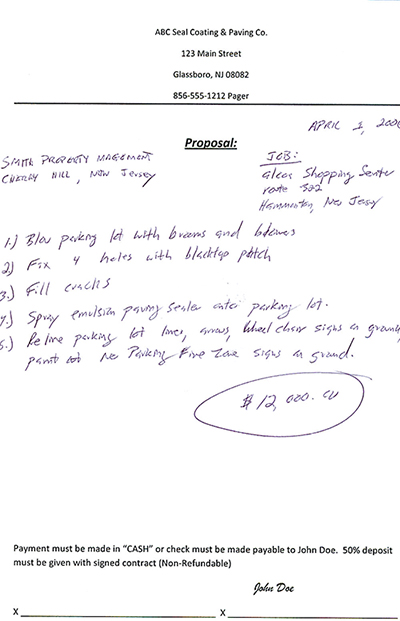 ABC Seal Coating & Paving Co.
123 Main Street
Glassboro, NJ 08082
856-555-1212 Pager
APRIL 1, 200
Proposal:
SMITH PROPERTY MAGEMENT
CHERRY HILL, NEW JERSEY
JOB:
Shopping Senter
route 322
Hammonton, New Jersey
1.) Blow parking lot with brooms and blowers
2.) Fix 4 holes with blacktop patch
3.) Fill cracks
4.) Spray emulsion paving sealer onto parking lot.
5.) Reline parking lot lines, arrows, wheel chair signs on ground,
paint No Parking Fire Zone signs on ground.
$12,000.00
Payment must be made in "CASH" or check must be made payable to John Doe. 50% deposit
must be given with signed contract (Non-Refundable)
John Doe
X
X